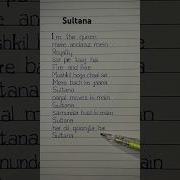 Sultana
I'm the queen
mere andaaz mein
Royalty
sar pe taaj hai
Fire and fire
Mushkil hoja chal se
Mera bach ke jaana
Sultana
pagal moves hi main
Sultana
Samundar husn hi main
Sultana
har dil hai
Sultana